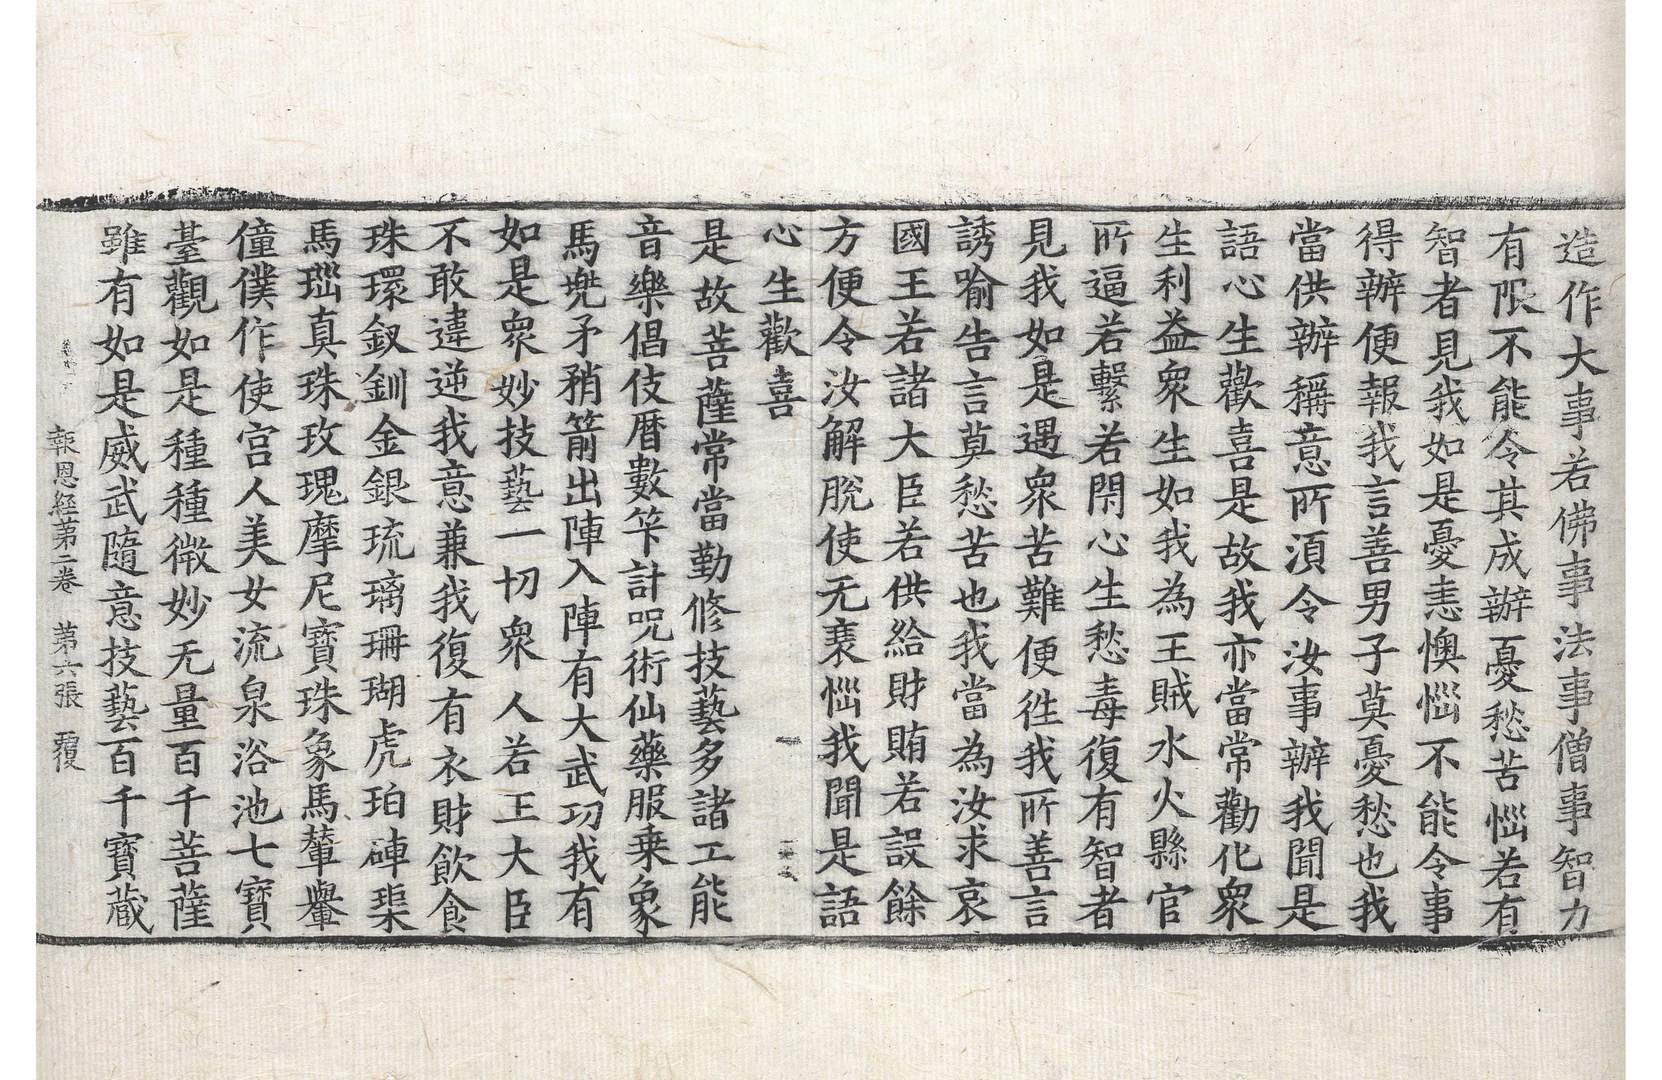 造作大事若佛事法事僧事智力
有限不能令其成辦憂愁苦惱若有
智者見我如是憂恚懊惱不能令事
得辦便報我言善男子莫憂愁也我
當供辦稱意所須令汝事辦我聞是
語心生歡喜是故我亦當常勸化衆
生利益衆生如我為王賊水火縣官
所逼若繫若閇心生愁毒復有智者
見我如是遇衆苦難便徃我所善言
誘喻告言莫愁苦也我當為汝求哀
國王若諸大臣若供給財賄若設餘
方便令汝解脫使无衰惱我聞是語
心生歡喜
是故菩薩常當勤修技藝多諸工能
音樂倡伎曆數竿計呪術仙藥服乗象
馬兠矛矟箭出陣入陣有大武㓛我有
如是衆妙技藝一切衆人若王大臣
不敢違逆我意兼我復有衣財飲食
珠環釵釧金銀琉璃珊瑚虎珀硨磲
馬瑙真珠玫瑰摩尼寶珠象馬輦轝
僮僕作使宮人美女流泉浴池七寶
臺觀如是種種微妙无量百千菩薩
雖有如是威武隨意技藝百千寶藏
報恩經第二卷　第六張　覆